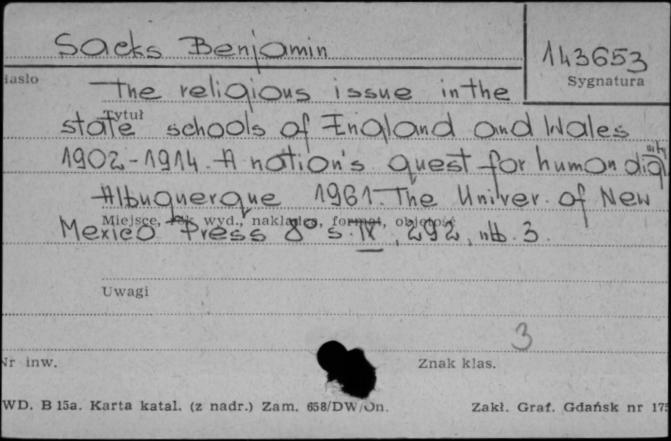 Sacks Benjamin
143653
Sygnatura
Hasło
The religious issue in the
Tytuł
state schools of England and Wales
1902-1914. A nation's quest for human dig
nity
Albuquerque 1961. The Univer. of New
Miejsce, rok wyd., nakładca, format, objętość
Mexico Press 8° s. IX, 292, nlb. 3.
Uwagi
3
Nr inw.
Znak klas.
WD. B 15a. Karta katal. (z nadr.) Zam. 658/DW/On.
Zakł. Graf. Gdańsk nr 175